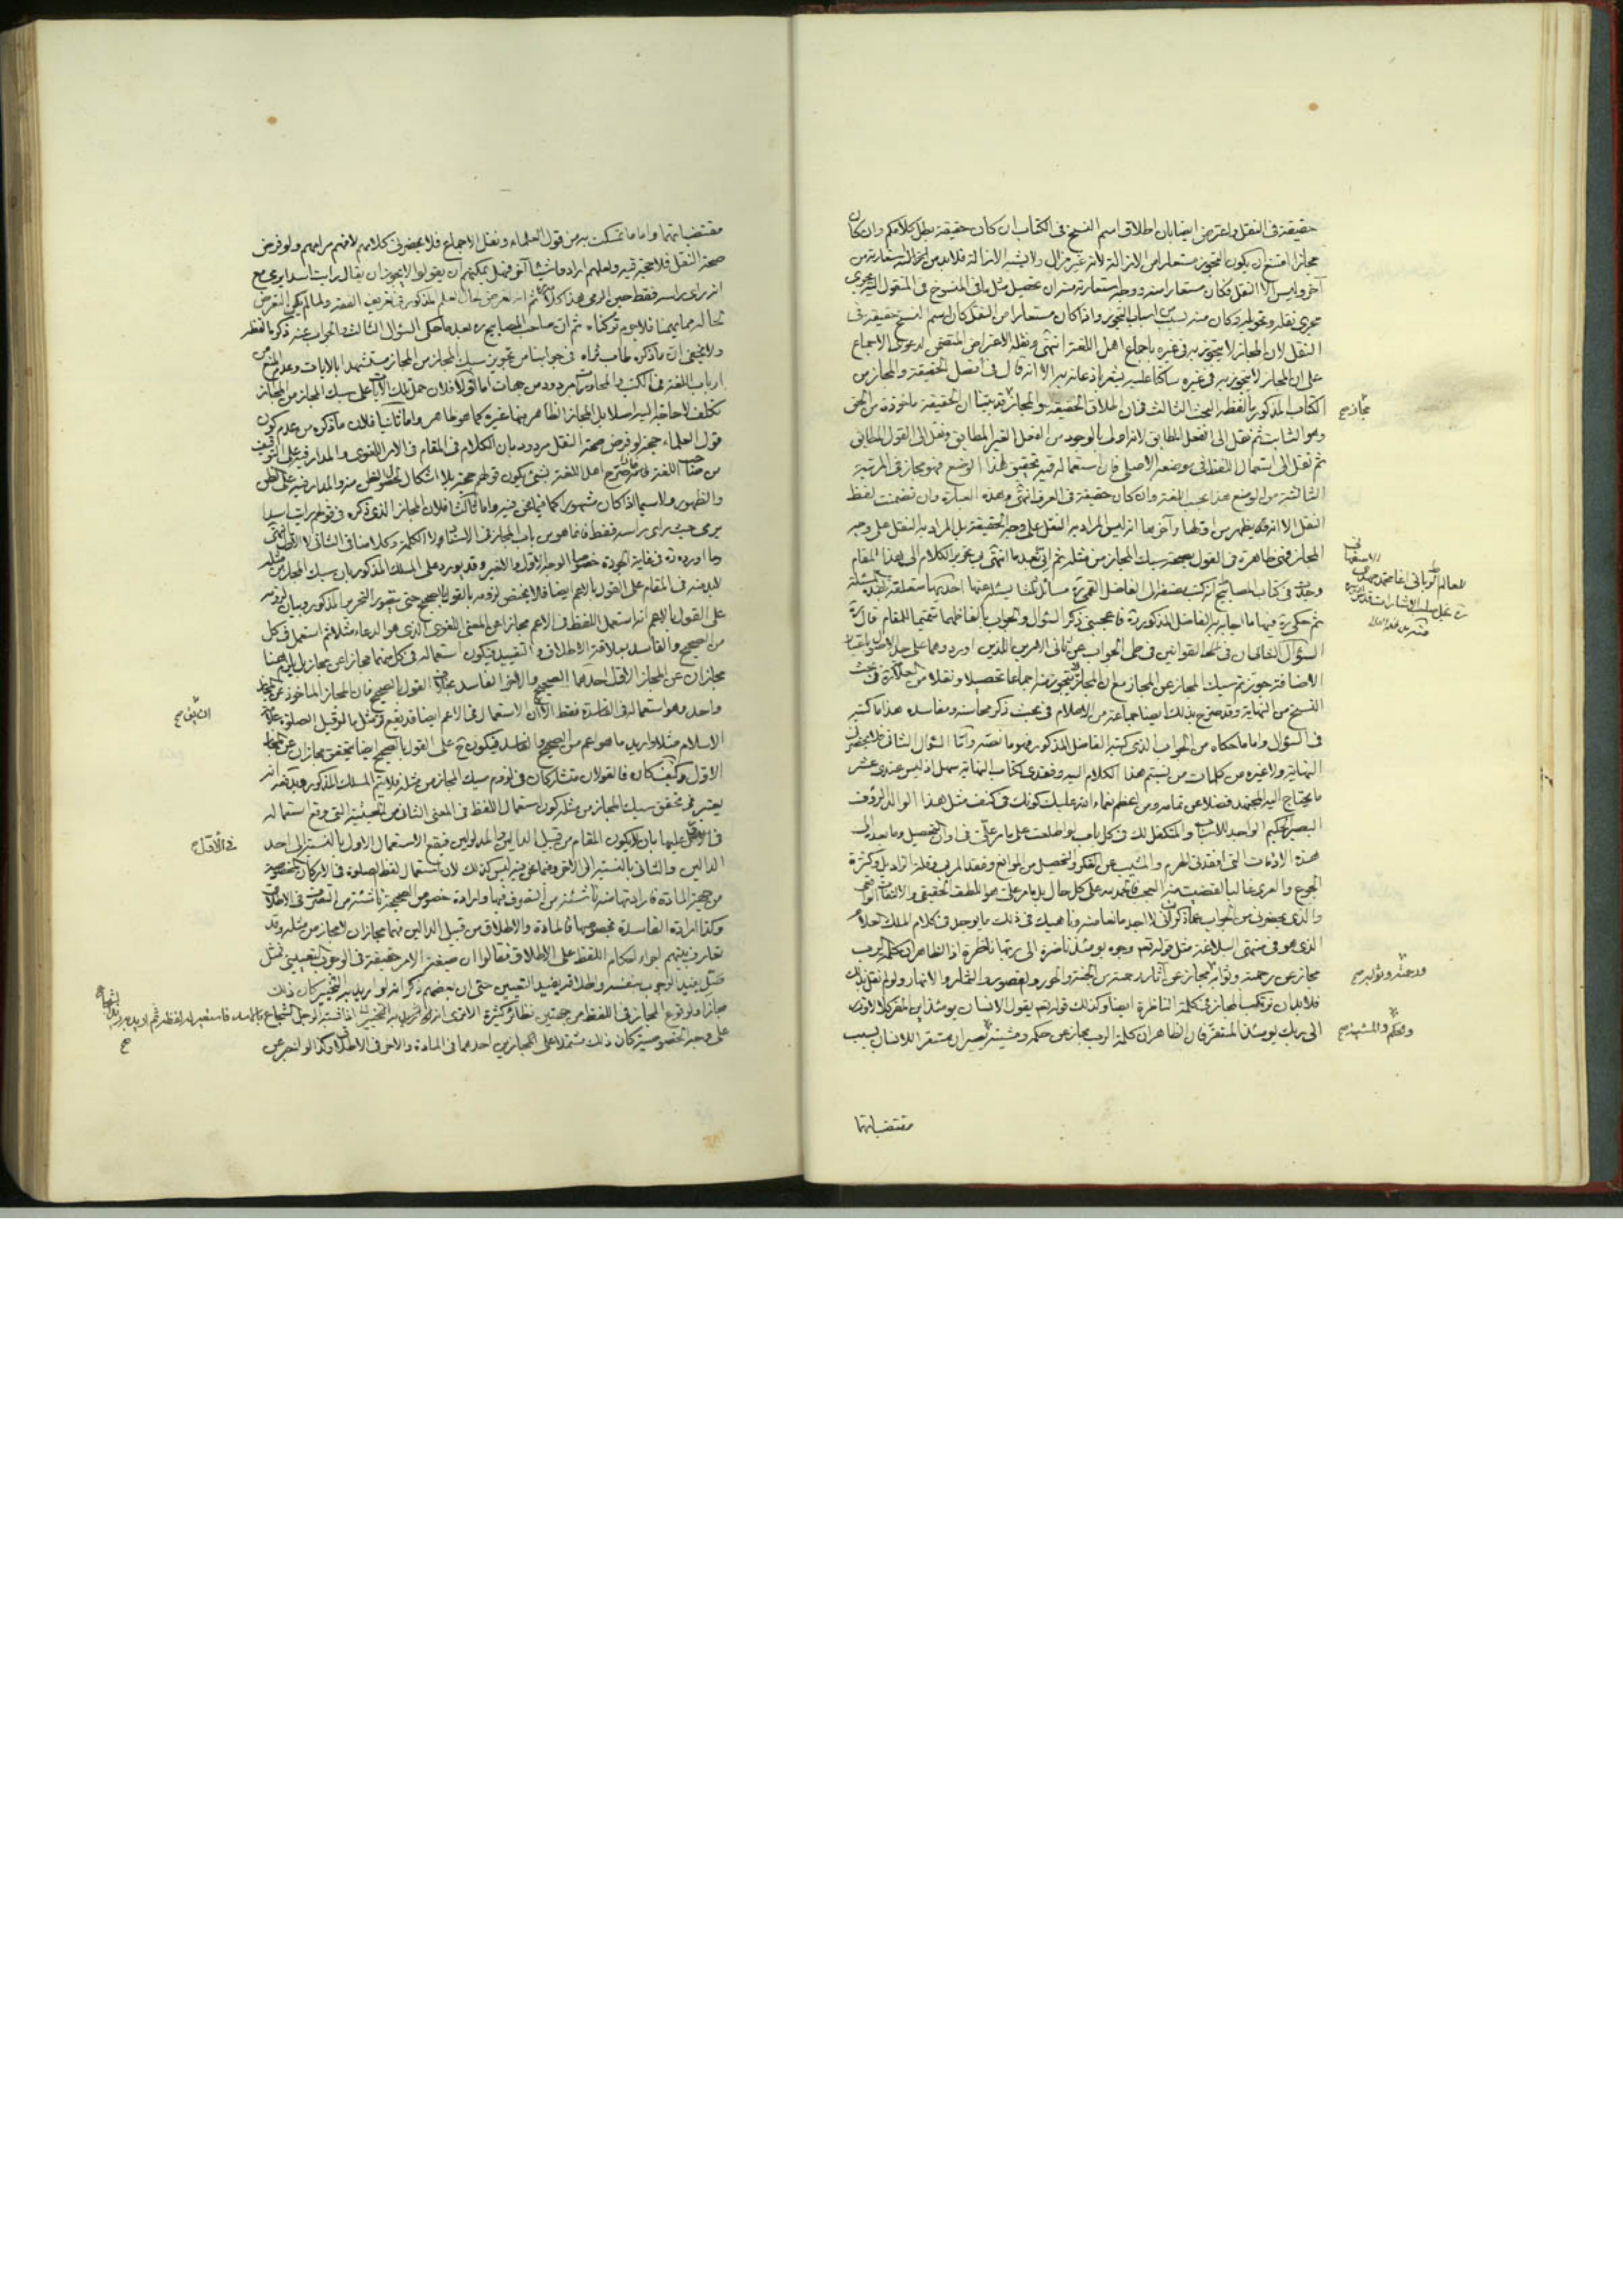 حقيقة فى النقل واعترض ايضا بان اطلاق اسم النسخ فى الكتاب ان كان حقيقة بطل كلامكم وان كان
مجازا امتنع ان يكون مستعارا من الازالة لانه غير مزال ولا يشبه الازالة فلا بد من استعارته من
آخر وليس الا النقل فكان مستعارا منه ووجه استعارته منه ان تحصيل مثل ما فى المنسوخ فى المنقول اليه يجرى
مجرى نقله وتحويله وكان منه بسبب من اسباب التجوز واذا كان مستعارا من النقل كان اسم النسخ حقيقة فى
النقل لان المجاز لا يتجوز به فى غيره باجماع اهل اللغة انتهى ونقله الاعتراض المقتضى لدعوى الاجماع
على ان المجاز لا يتجوز به فى غيره ساكتا عليه يشعر باذعانه به الا انه قال فى افضل الحقيقة والمجاز من
الكتاب المذكور بالفظه البحث الثالث فى ان اطلاق الحقيقة والمجاز قد بينا ان الحقيقة ماخوذة من الحق
وهو الثابت ثم نقل الى العقد المطابق لانه اولى بالوجود من العقد الغير المطابق ونقل الى القول المطابق
ثم نقل الى استعمال اللفظ فى موضعه الاصلى فان استعماله فيه تحقيق لهذا الوضع فهو مجاز فى المرتبة
الثالثة من الوضع هذا بحسب اللغة وان كان حقيقة فى العرف انتهى وهذه العبارة وان تضمنت لفظ
النقل الا انه يظهر من اولها وآخرها انه ليس المراد به النقل على وجه الحقيقة بل المراد به النقل على وجه
المجاز فهى ظاهرة فى القول بصحة سبك المجاز من مثله ثم انى بعد ما انتهى بى تحرير الكلام الى هذا المقام
وجدت فى كتاب المصابيح انه كتب مصنفه الى الفاضل القمى ره مسائل ثلثا يسئله عنها احديها متعلقة بهذه المسئلة
ثم حكى ره فيها ما اجابه به الفاضل المذكور ره فاعجبنى ذكر السؤال والجواب بالفاظهما تتميما للمقام قال ره
السؤال الثانى ان فى القوانين فى طى الجواب عن ثانى الامرين اللذين اورد وهما على حمل
الاضافة جوزتم سبك المجاز عن المجاز مع ان المجاز لا يتجوز منه اجماعا تحصيلا ونقلا من العلامة فى بحث
النسخ من النهاية وقد صرح بذلك ايضا جماعة من الاعلام فى بحث ذكر محاسنه ومفاسده هذا ما كتب
فى السؤال واما ما حكاه من الجواب الذى كتبه الفاضل المذكور فهو ما نصه واما السؤال الثانى فلا يحضرنى
النهاية ولا غيره من كلمات من ينتمى هذا الكلام اليه وفقدى كتاب النهاية سهل اذ ليس عندى عشر
ما يحتاج اليه المجتهد فضلا عن تمامه ومن اعظم نعماء الله عليك كونك فى كنف مثل هذا الوالد الرؤف
البصير الحكيم الواجد للاسباب والمتكفل لك فى كل باب
هذه الازمات التى افقدنى الهرم والمشيب عن الفكر والتحصيل من الموانع وفقد المربى وقلة الزاد بل وكثرة
الجوع والعرى غالبا
والذى يحضرنى من الجواب ان لا اجد مانعا منه وناهيك فى ذلك ما يوجد فى كلام الملك العلام
الذى هو فى منتهى البلاغة مثل قوله تعم وجوه يومئذ ناضرة الى ربها ناظرة اذ الظاهر ان كلمة الرب
مجاز عن رحمته وثوابه مجاز عن آثار رحمته من الجنة والحور والقصور والثمار والانهار ولو لم نقل بذلك
فلا بد ان نرتكب المجاز فى كلمة الناظرة ايضا وكذلك قوله تعم يقول الانسان يومئذ اين المفر كلا لا وزر
الى ربك يومئذ المستقر فان الظاهر ان كلمة الرب مجاز عن حكمه ومشيته يصير ان مستقرا للانسان بسبب
مقتضياتها
مجازى صح
ورحمته وثوابه صح
والحكم والمشية صح
مقتضياتهما واما ما تمسكت به من قول العلماء ونقل الاجماع فلا يحضرنى كلامهم لافهم مرامهم ولو فرض
صحة النقل فلا حجية فيه ولعلهم ارادوا شيئا آخر فهل يمكنهم ان يقولوا لا يجوز ان يقال رايت اسدا يرمى مع
انه راى راسه فقط حين الرمى هذا كلامه ثم انه تعرض لحال العلم المذكور فى تعريف الفقه ولما لم يكن التعرض
لحاله مما يهمنا فلا جرم تركناه ثم ان صاحب المصابيح ره بعد ما حكى السؤال الثالث والجواب عنه ذكر بالفظه
ولا يخفى ان ما ذكره طاب ثراه فى جوابنا من تجويز سبك المجاز من المجاز مستشهدا بالايات وعدم المنع من
ارباب اللغة فى الكتب والمحاورات مردود من جهات اما اولا فلان حمل تلك الآيات على سبك المجاز من المجاز
تكلف لا حاجة اليه اصلا بل المجاز الظاهر بها غيره كما هو ظاهر واما ثانيا فلان ما ذكره من عدم كون
قول العلماء حجة لو فرض صحة النقل مردود بان الكلام فى المقام فى الامر اللغوى والمدار فيه على التوقيف
من صاحب اللغة
والظهور ولا سيما اذا كان مشهورا كما فيما نحن فيه واما ثالثا فلان المجاز الذى ذكره فى قولهم رايت اسدا
يرمى حيث راى راسه فقط فانما هو من باب المجاز فى الاسناد ولا الكلمة وكلامنا فى الثانى لا الاول انتهى
وما اورده ره فى غاية الجودة خصوصا الوجه الاول والاخير وقد يورد على المسلك المذكور بان سبك المجاز من مثله
لا بد منه فى المقام على القول بالاعم ايضا فلا يختص لزومه بالقول بالصحيح حتى يتصور التحرير المذكور وبيان لزومه
على القول بالاعم انه استعمل اللفظ فى الاعم مجازا عن المعنى اللغوى الذى هو الدعاء مثلا ثم استعمل فى كل
من الصحيح والفاسد بعلاقة الاطلاق والتقييد فيكون استعماله فى كل منهما مجازا عن مجاز بل يلزم هنا
مجازان عن المجاز الاول احدهما الصحيح والاخر الفاسد بخلاف القول بالصحيح فان المجاز الماخوذ عن مجاز
واحد وهو استعماله فى الفاسدة فقط الا ان الاستعمال فى الاعم ايضا قد يقع فى مثل ما لو قيل الصلوة علامة
الاسلام مثلا واريد ما هو اعم من الصحيح والفاسد فيكون ح على القول بالصحيح ايضا يتحقق مجازان عن المجاز
الاول وكيف كان فالقولان متشاركان فى لزوم سبك المجاز من مثله فلا يتم المسلك المذكور ويدفعه انه
يعتبر فى تحقق سبك المجاز من مثله كون استعمال اللفظ فى المعنى الثانى من الحيثية التى وقع استعماله
فى الاول عليها بان لا يكون المقام من قبيل الدالين والمدلولين فيقع الاستعمال الاول بالنسبة الى احد
الدالين والثانى بالنسبة الى الاخر وفيما نحن فيه ليس كذلك لان استعمال لفظ الصلوة فى الاركان المخصوصة
من جهة المادة فارادتها منه ناشئة من التصرف فيها وارادة خصوص الصحيحة ناشئة من التصرف فى الاطلاق
وكذا ارادة الفاسدة بخصوصها فالمادة والاطلاق من قبيل الدالين فهما مجازان لا مجاز من مثله وقد
تعارف بينهم اجراء احكام اللفظ على الاطلاق فقالوا ان صيغة الامر حقيقة فى الوجوب التعيينى فمثل
صل يفيد الوجوب بنفسه واطلاقه يفيد التعيين حتى ان بعضهم ذكر انه لو اريد به التخيير كان ذلك
مجازا ولوقوع المجاز فى اللفظ من جهتين نظائر كثيرة
على وجه الخصوصية كان ذلك مشتملا على المجازين احدهما فى المادة والاخر فى الاطلاق وكذا لو انجر عن
الثانى صح
فى الاول صح